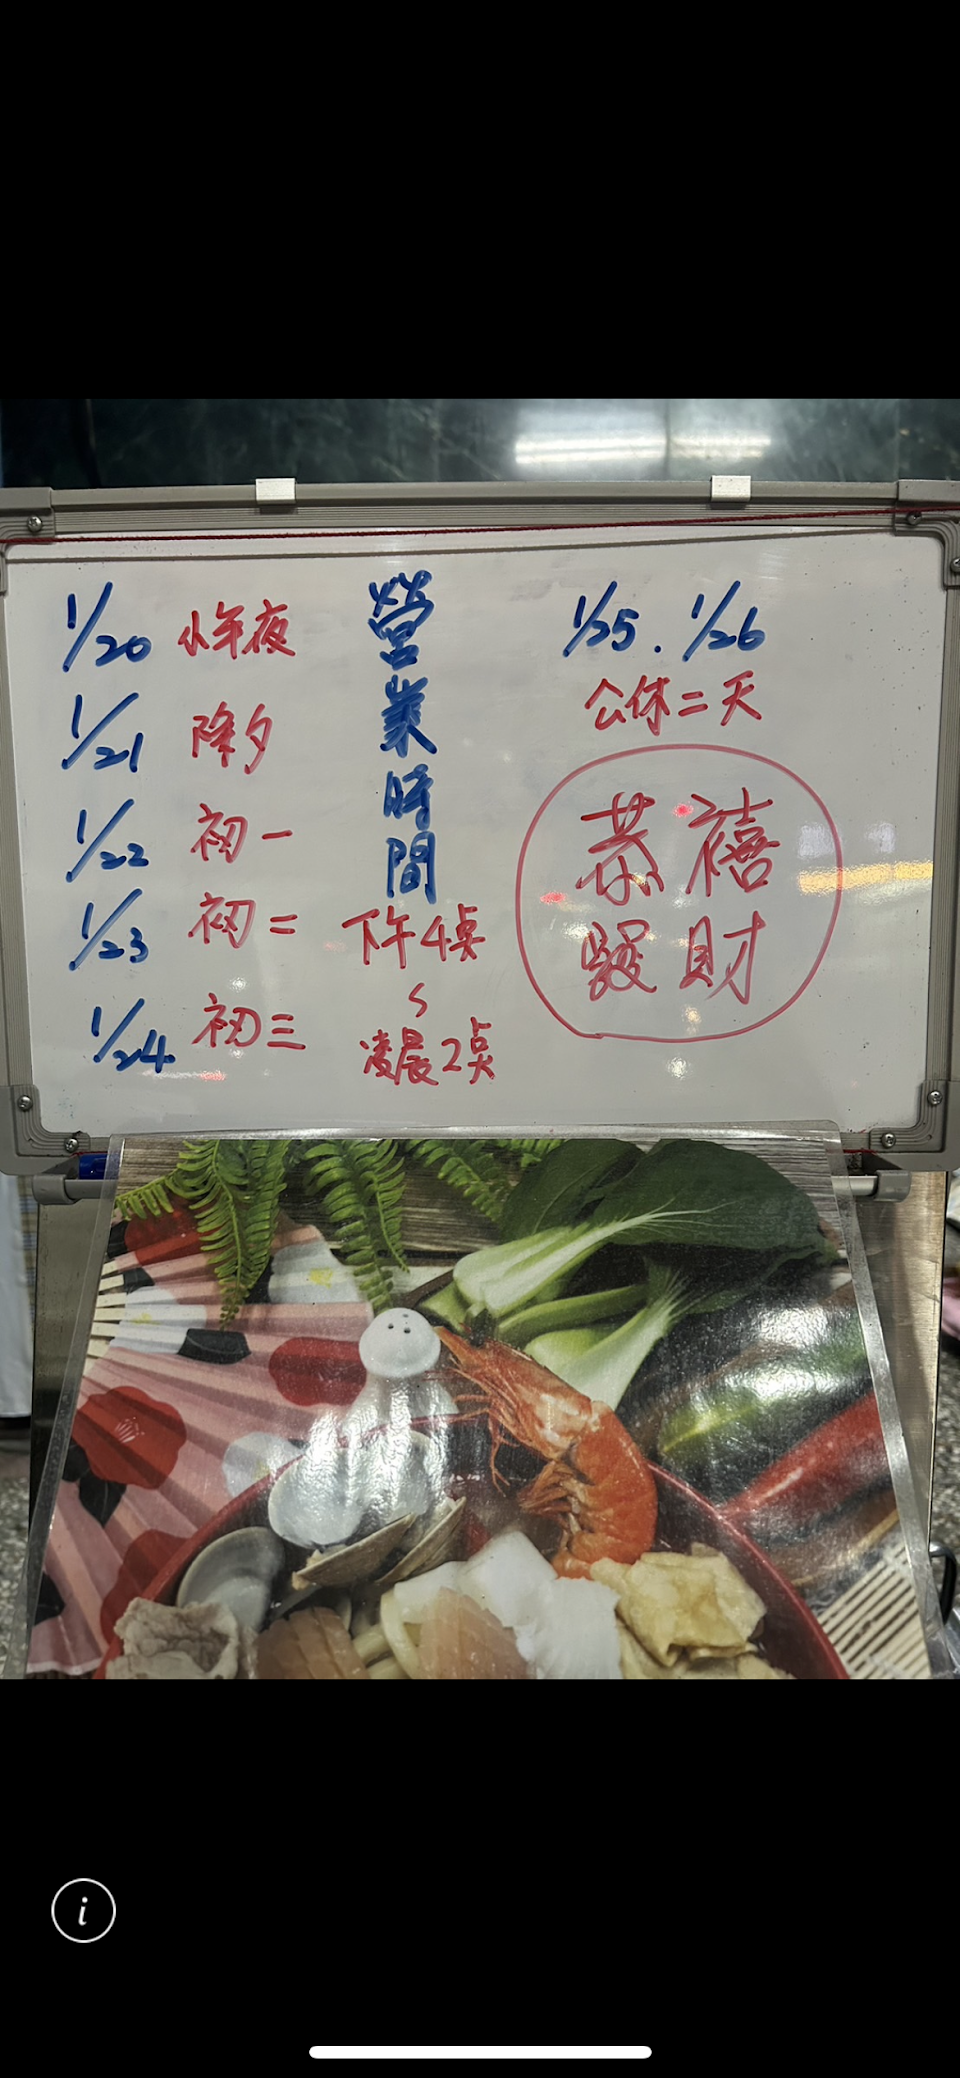 1/20 小年夜
1/21 除夕
1/22 初一
1/23 初二
1/24 初三
營業時間
下午4點
~
凌晨2點
1/25.1/26
公休二天
恭禧
發財
i